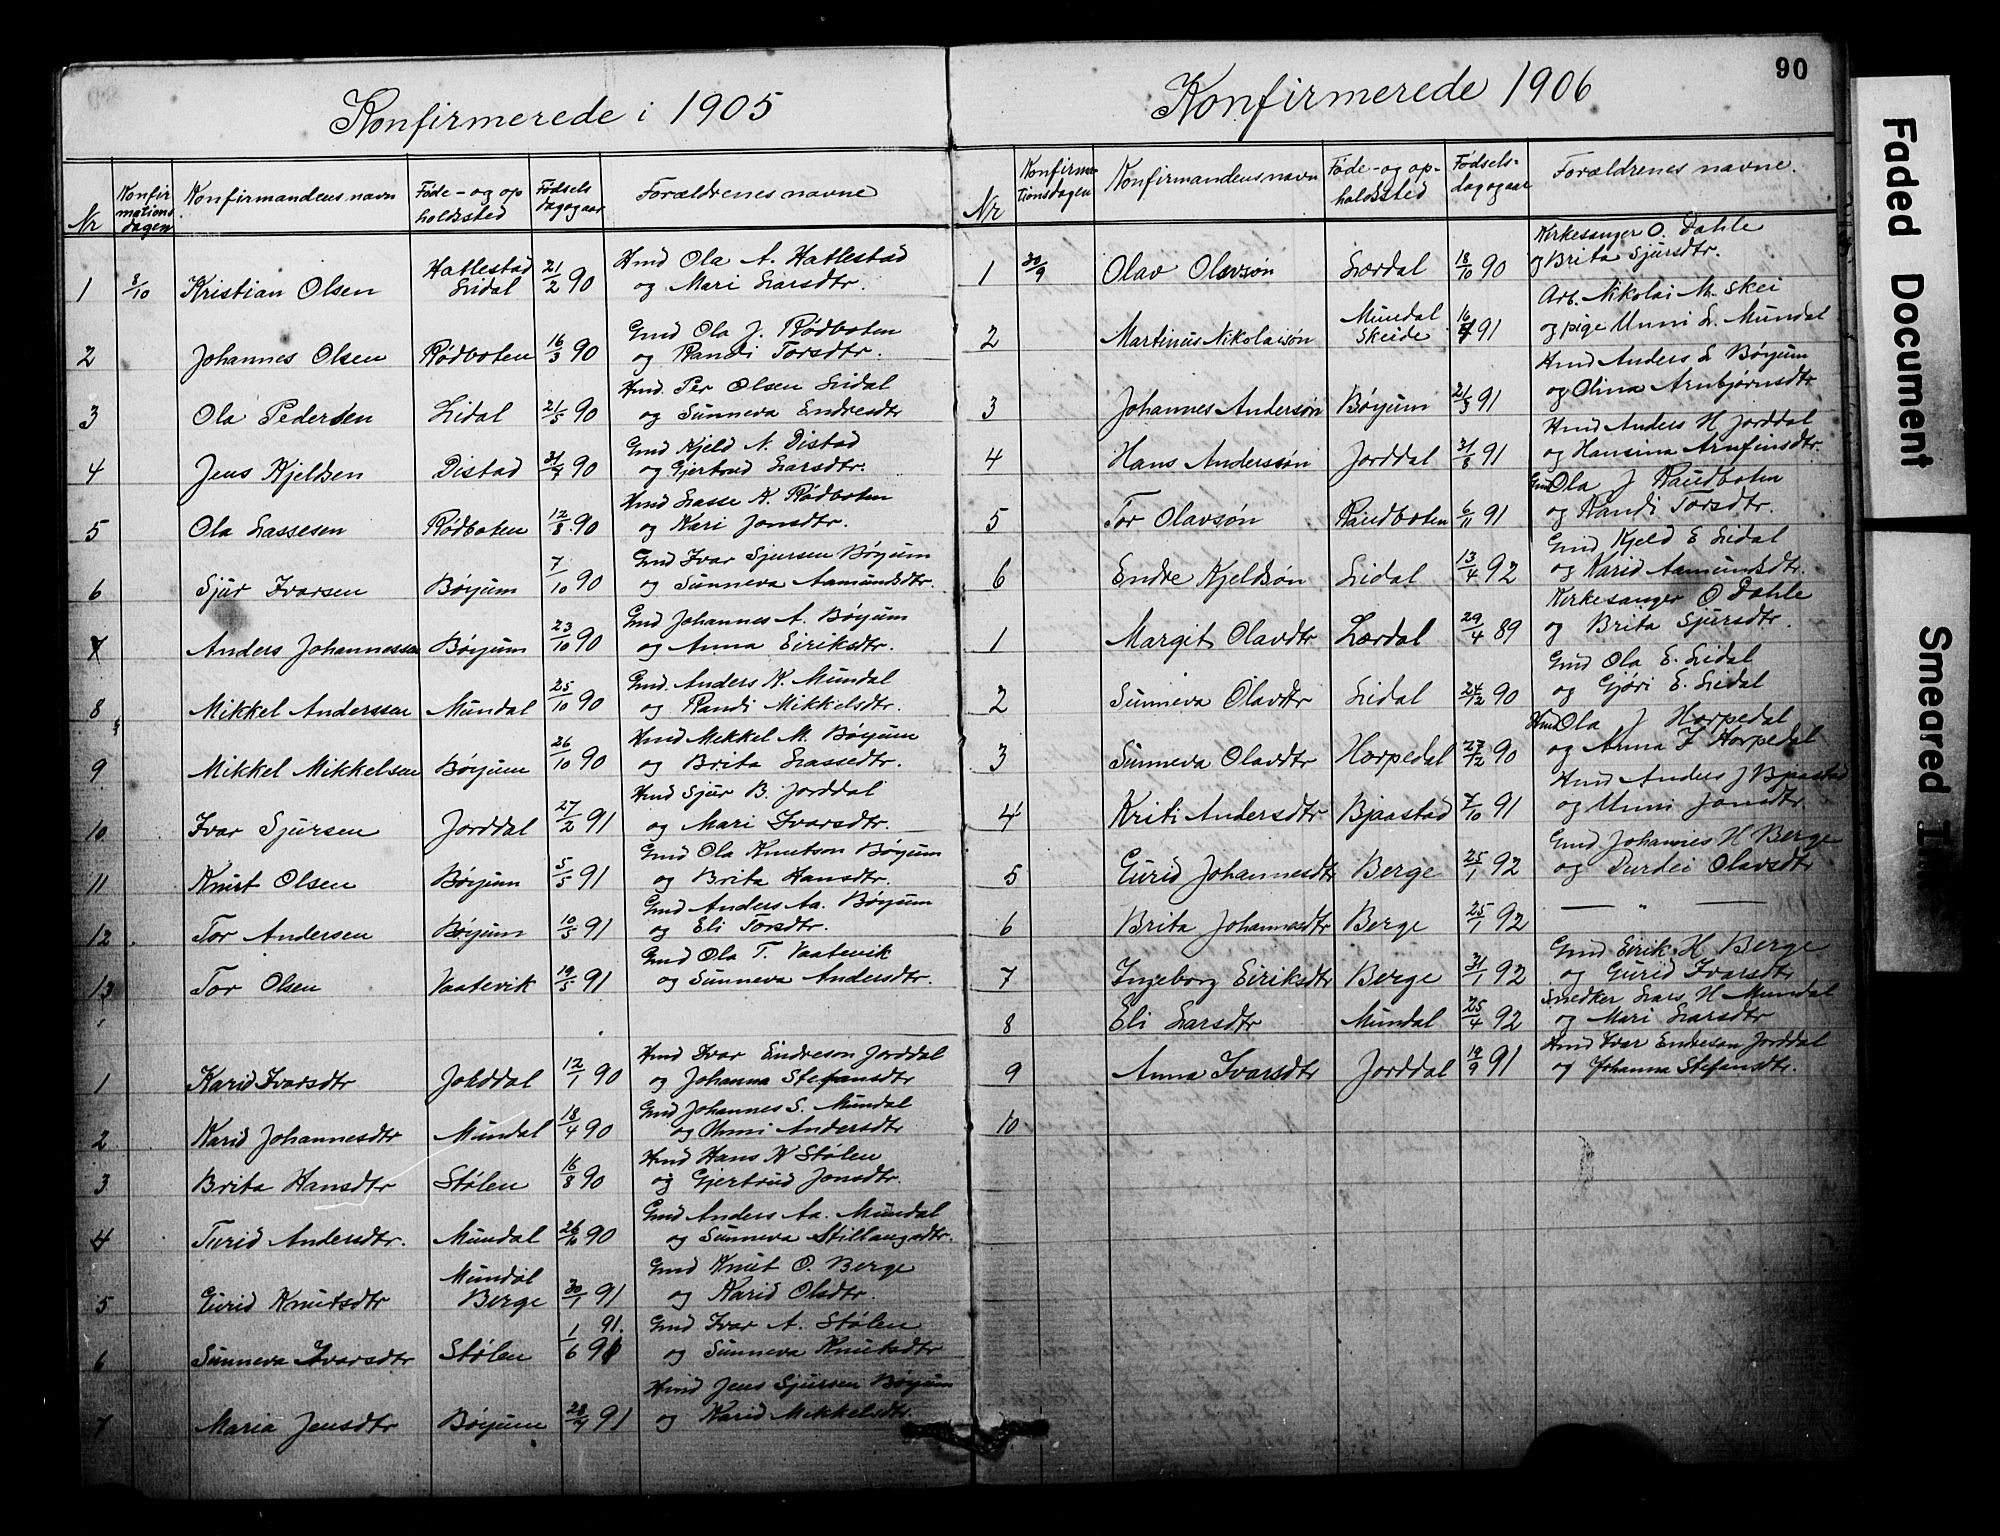 90
Konfirmerede i 1905
Nr Konfirmationsdagen Konfirmandens navn Føde- og opholdssted Fødsels dag og aar Forældrenes navne
1 8/10 Kristian Olsen Hatlestad Lidal 21/2 90 Hmd Ola A. Hatlestad
og Mari Larsdtr.
2 Johannes Olsen Rødboten 16/3 90 Gmd Ola J. Rødboten
og Randi Torsdtr.
3 Ola Pedersen Lidal 21/5 90 Hmd. Per Olsen Lidal
og Sunneva Endresdtr
4 Jens Kjeldsen Distad 31/7 90 Gmd Kjeld N. Distad
og Gjertrud Larsdtr.
5 Ola Lassesen Rødboten 12/8 90 Hmd Lasse K. Rødboten
og Kari Jonsdtr.
6 Sjur Ivarsen Bøyum 7/10 90 Gmd Ivar Sjursen Bøyum
og Sunneva Aamundsdtr.
7 Anders Johannessen Bøyum 23/10 90 Gmd Johannes A. Bøyum
og Anna Eiriksdtr.
8 Mikkel Anderssen Mundal 25/10 90 Gmd. Anders K. Mundal
og Randi Mikkelsdtr.
9 Mikkel Mikkelsen Bøyum 26/10 90 Hmd Mekkel M. Bøyum
og Brita Lassedtr.
10 Ivar Sjursen Jorddal 27/2 91 Hmd Sjur B. Jorddal
og Mari Ivarsdtr.
11 Knut Olsen Bøyum 5/5 91 Gmd Ola Knutson Bøyum
og Brita Hansdtr.
12 Tor Andersen Bøyum 10/5 91 Gmd Anders Aa. Bøyum
og Eli Torsdtr.
13 Tor Olsen Vaatevik 19/5 91 Gmd Ola T. Vaatevik
og Sunneva Andersdtr.
1 Karid Ivarsdtr Jorddal 12/1 90 Hmd Ivar Endreson Jorddal
og Johanna Stefansdtr
2 Karid Johannesdtr Mundal 18/4 90 Gmd Johannes S. Mundal
og Unni Andersdtr
3 Brita Hansdtr Stølen 16/8 90 Hmd Hans K Stølen
og Gjertrud Jonsdtr.
4 Turid Andersdtr. Mundal 26/10 90 Gmd Anders Aa. Mundal
og Sunneva Stillaugsdtr.
5 Gurid Knutsdtr Mundal Berge 30/1 91 Gmd Knut O. Berge
og Karid Olsdtr.
6 Sunneva Ivarsdtr Stølen 1/6 91. Gmd Ivar A. Stølen
og Sunneva Knutsdtr
7 Maria Jensdtr Bøyum 28/7 91 Hmd Jens Sjursen Bøyum
og Karid Mikkelsdtr.
Konfirmerede 1906
Nr Konfirmationsdagen Konfirmandens navn Føde- og opholdssted Fødselsdag og aar Forældrenes navne.
1 30/9 Olav Olavsøn Lærdal 18/10 90 Kirkesanger O. Dahle
og Brita Sjursdtr.
2 Martinus Nikolaisøn Mundal Skeide 16 91 Arb. Nikolai M. Skei
og pige Unni L. Mundal
3 Johannes Andersøn Bøyum 21/3 91 Hmd Anders L Bøyum
og Olina Arnbjørnsdtr
4 Hans Anderssøn Jorddal 31/8 91 Hmd Anders H Jorddal
og Hansina Arnfinsdtr.
5 Tor Olavsøn Raudboten 6/11 91 Gmd Ola J Raudboten
og Randi Torsdtr.
6 Endre Kjeldsøn Lidal 13/4 92 Gmd Kjeld E Lidal
og Karid Aamundsdtr.
1 Margit Olavdtr Lærdal 29/4 89 Kirkesanger O Dahle
og Brita Sjursdtr.
2 Sunneva Olavdtr Lidal 24/12 90 Gmd Ola E. Lidal
og Gjøri E. Lidal
3 Sunneva Olavdtr Horpedal 27/12 90 Hmd Ola J Horpedal
og Anna I Horpedal
4 Kristi Andersdtr Bjaastad 7/10 91 Hmd Anders J Bjaastad
og Unni Jonsdtr.
5 Gurid Johannesdtr Berge 25/1 92 Gmd Johannes H Berge
og Durdei Olavsdtr
6 Brita Johannesdtr Berge 25/1 92 — " —
7 Ingeborg Eiriksdtr Berge 31/1 92 Gmd Eirik H Berge
og Gurid Ivarsdtr
8 Eli Larsdtr Mundal 25/4 92 Snedker Lars H Mundal
og Mari Larsdtr
9 Anna Ivarsdtr Jorddal 19/9 91 Hmd Ivar Endreson Jorddal
og Johanna Stefansdtr.
10
Faded Document
Smeared